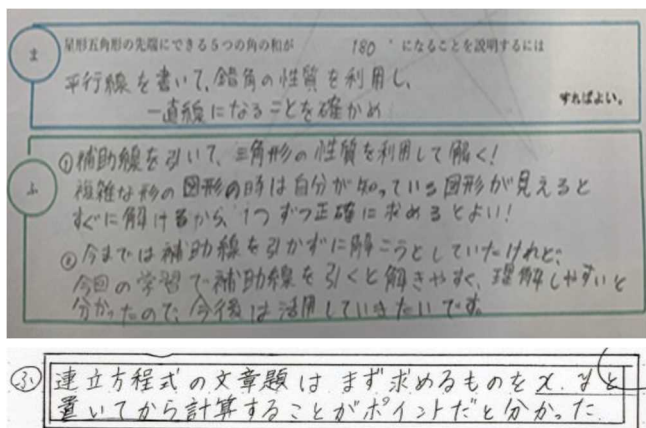 ま
星形五角形の先端にできる5つの角の和が 180 °になることを説明するには
平行線を書いて、錯角の性質を利用し、
一直線になることを確かめ
すればよい。
ふ
①補助線を引いて、三角形の性質を利用して解く!
複雑な形の図形の時は自分が知っている図形が見えると
すぐに解けるから1つずつ正確に求めるとよい!
②今までは補助線を引かずに解こうとしていたけれど、
今回の学習で補助線を引くと解きやすく、理解しやすいと
分かったので、今後は活用していきたいです。
ふ 連立方程式の文章題はまず求めるものをx、yと
置いてから計算することがポイントだと分かった。